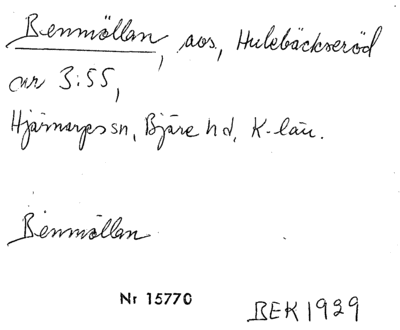 Benmöllan, avs, Hulebäckseröd
nr 3:55,
Hjärnarps sn, Bjäre hd, K-län.
Benmöllan
Nr 15770
BEK 1929